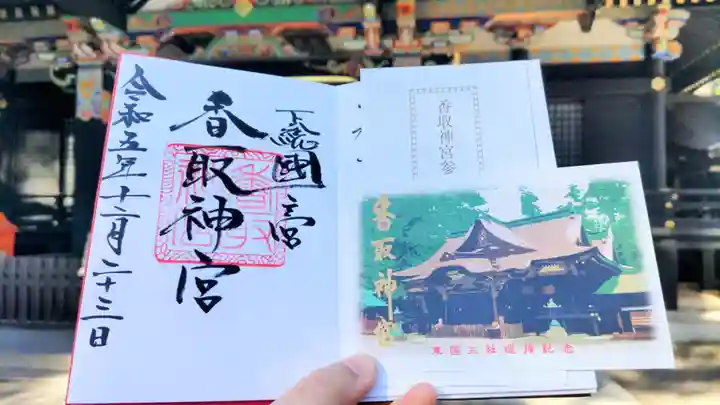 下総國一宮
香取神宮
令和五年十二月二十三日
香取神宮参
香取神宮
東国三社巡拝記念